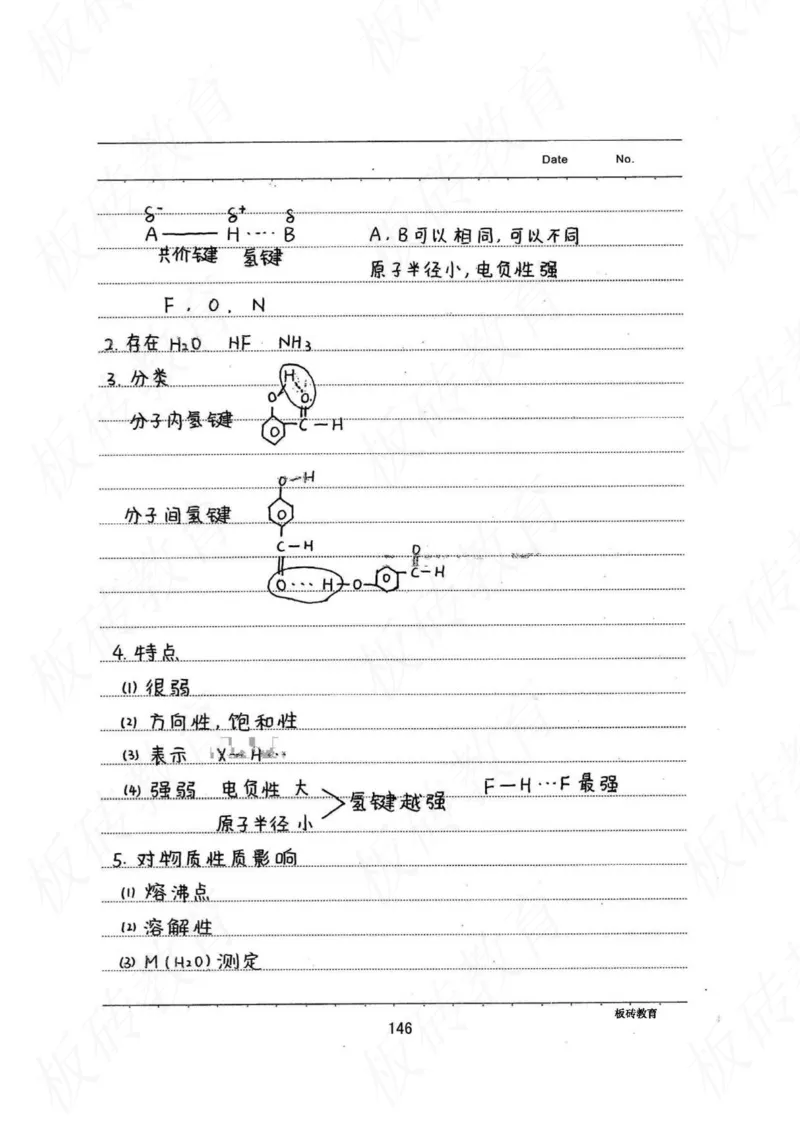 Date No.
δ⁻ δ⁺ δ
A — H ···· B A、B可以相同,可以不同
共价键 氢键
原子半径小,电负性强
F、O、N
2. 存在 H₂O HF NH₃
3. 分类
H
O O
分子内氢键 C—H
O—H
分子间氢键
C—H
O
C—H
O··· H—O
4. 特点
(1) 很弱
(2) 方向性,饱和性
(3) 表示 X—H···
(4) 强弱 电负性 大
氢键越强 F—H···F 最强
原子半径 小
5. 对物质性质影响
(1) 熔沸点
(2) 溶解性
(3) M(H₂O)测定
板砖教育
146